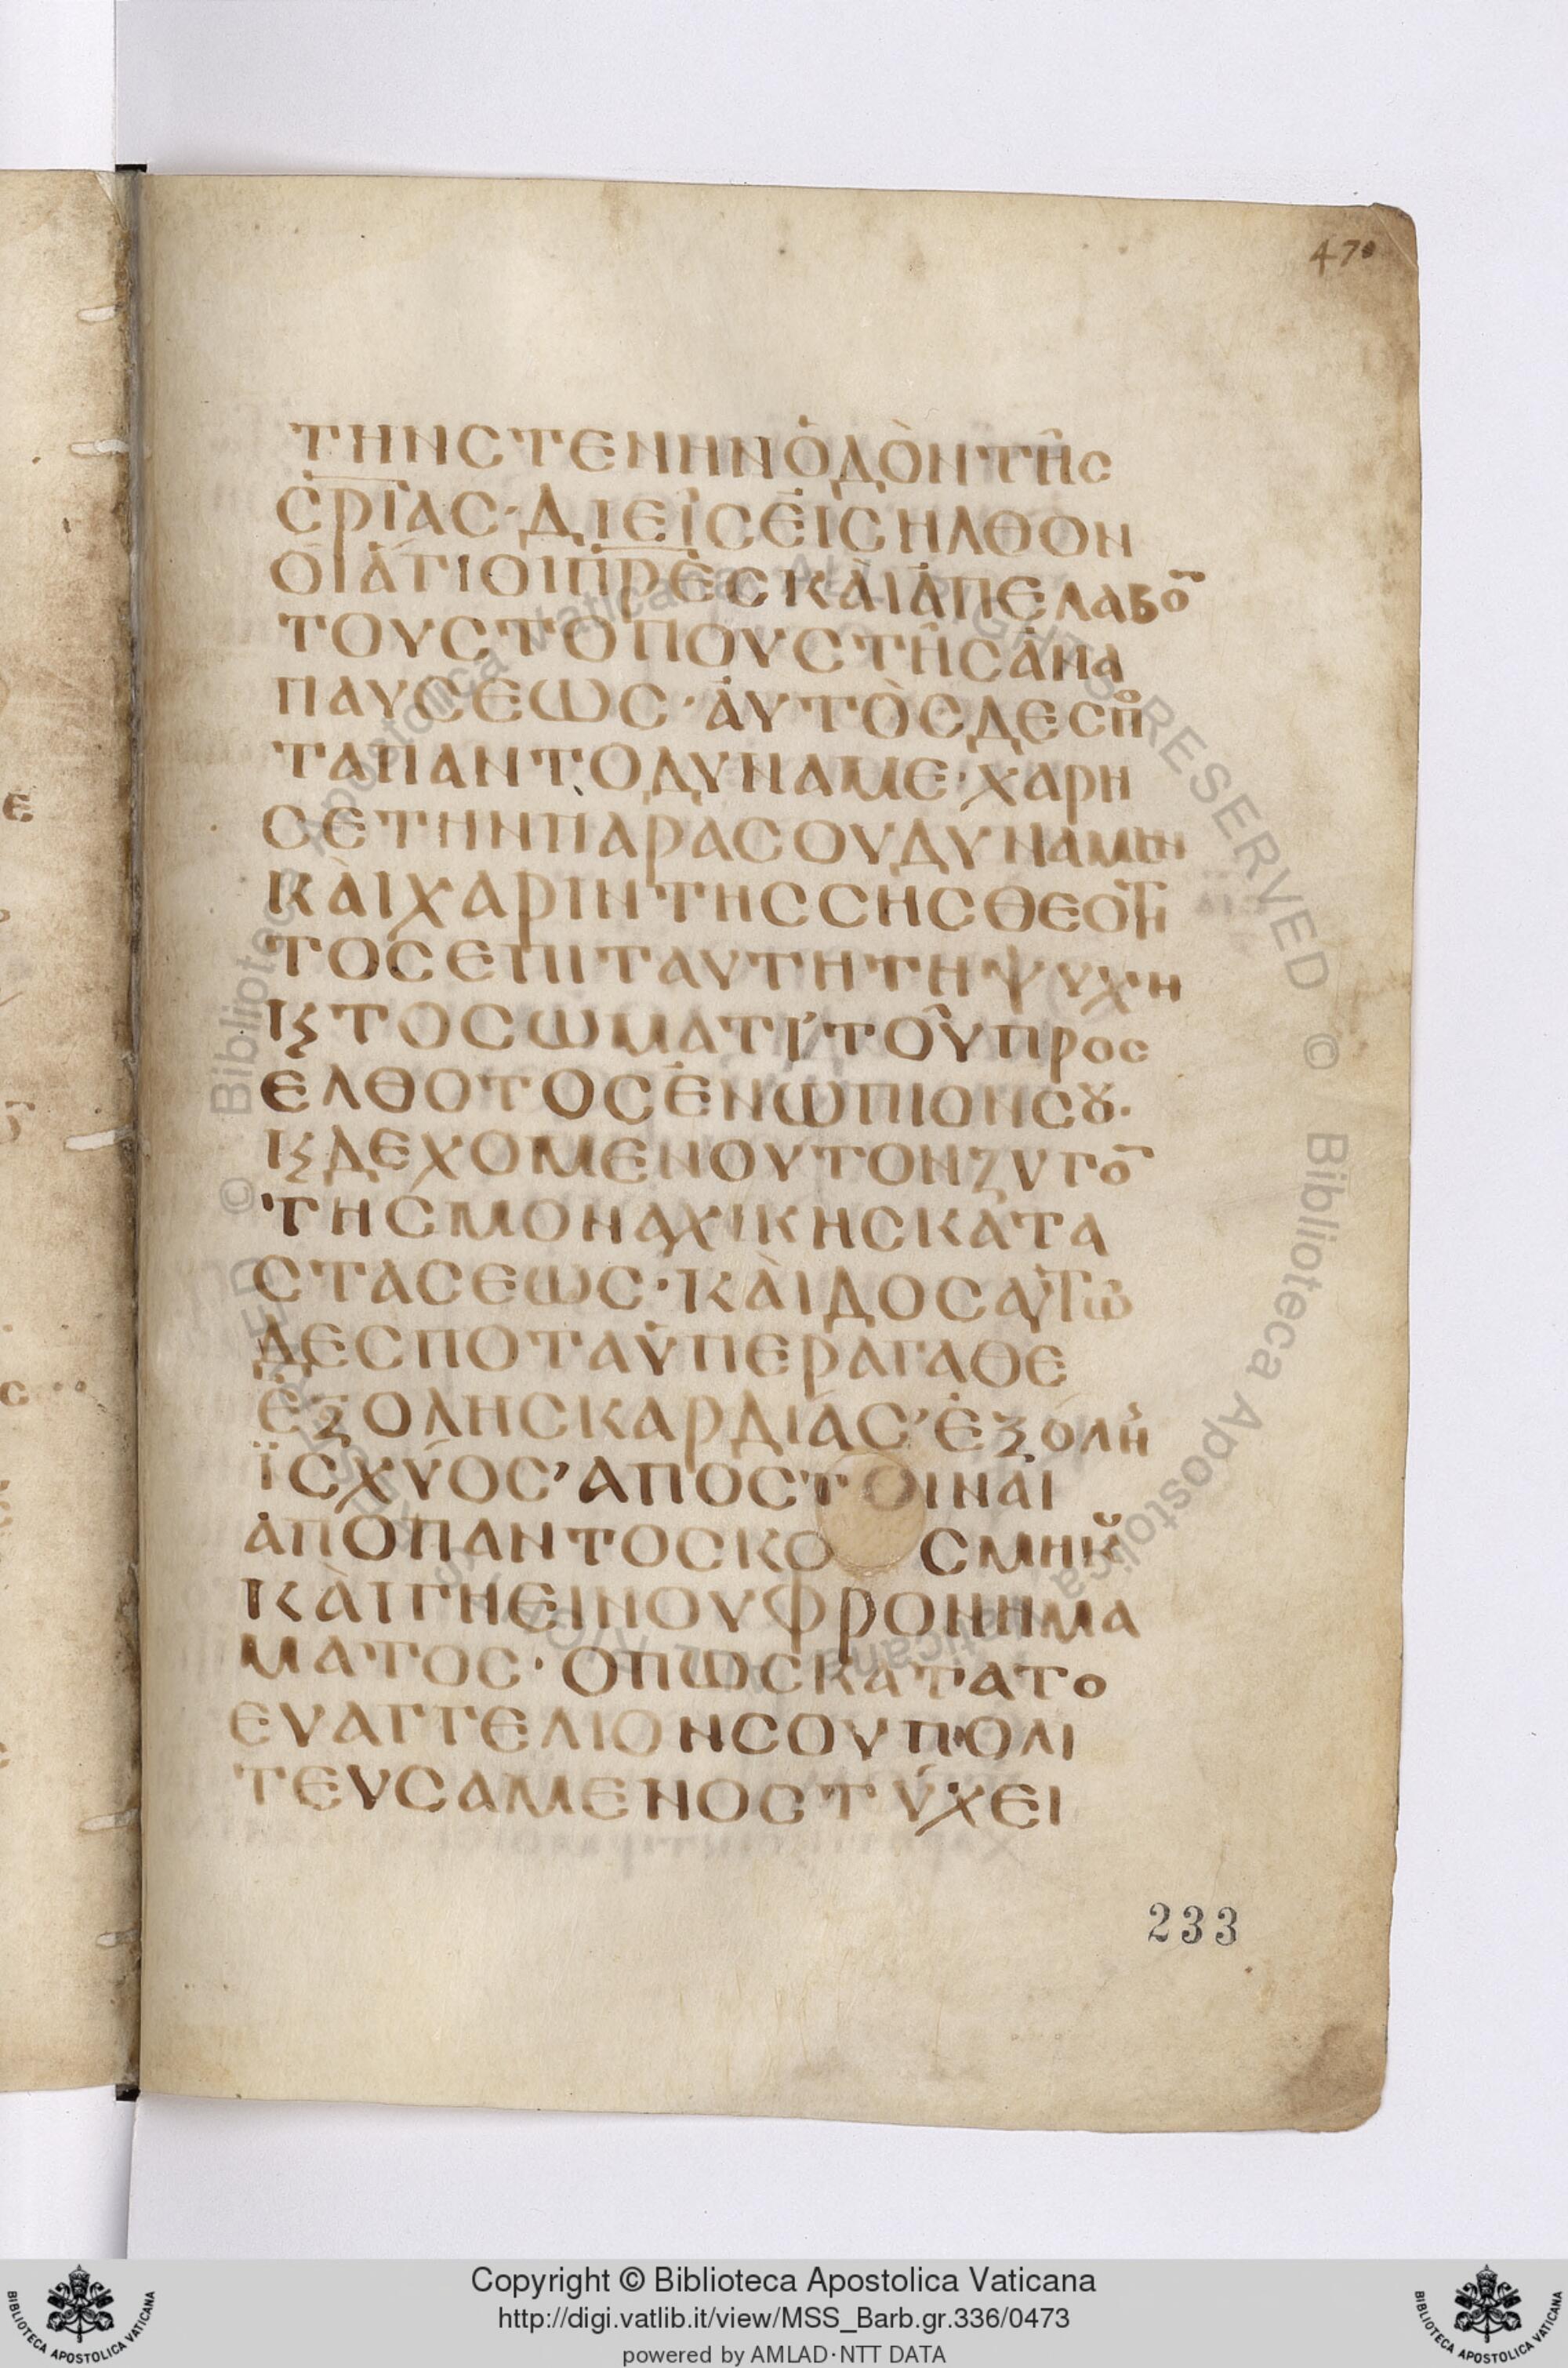 470
ΤΗΝСΤΕΝΗΝὉΔῸΝΤΗ͂С
С̅Ρ̅Ι̅ΑС·ΔΙΕΙ҆СΕΙ҆СΗΛΘΟΝ
ΟΙἉΓΙΟΙΠ̅Ρ̅ΕСΚΑῚἈΠΕΛΑΒΟ̅
ΤΟΥСΤΟΠΟΥСΤΗ͂СἈΝΑ
ΠΑΥСΕΩС·ἈΥΤῸСΔΕСΠº
ΤΑΠΑΝΤΟΔΥΝΑΜΕ·ΧΑΡΗ
СΕΤΗΝΠΑΡΑСΟΥΔΎΝΑΜΙΝ
ΚΑῚΧΑΡΙΝΤΗССΗСΘΕΟΤΗ
ΤΟСΕΠΙΤΑΥΤΗΤΗΨΥΧΗ
ΚϚΤΟСΩΜΑΤΙ'ΤΟΥ͂ΠΡΟС
ΕΛΘΟΤΟСἘΝΩΠΙΟΝСȢ·
ΚϚΔΕΧΟΜΕΝΟΥΤΟΝΖΥΓΟ̅
ΤΗСΜΟΝΑΧΙΚΗСΚΑΤΑ
СΤΑСΕΩС·ΚΑῚΔΟСΑΥΤΩ
ΔΕСΠΟΤΑὙΠΕΡΑΓΑΘΕ
ἘΞΟΛΗСΚΑΡΔΙΑС'ἘΞΟΛΗ
ΪСΧΎΟС'ΑΠΟСΤΟΙΝΑΙ
ἈΠΟΠΑΝΤΟСΚΟ СΜΗΚȢ
ΚΑῚΓΗΕΙΝΟΥΦΡΟΝΗΜΑ
ΜΑΤΟС·ΟΠΩСΚΑΤΑΤΟ
ΕΥΑΓΓΕΛΙΟΝСΟΥΠΟΛΙ
ΤΕΥСΑΜΕΝΟСΤΎΧΕΙ
233
Copyright © Biblioteca Apostolica Vaticana
http://digi.vatlib.it/view/MSS_Barb.gr.336/0473
powered by AMLAD·NTT DATA